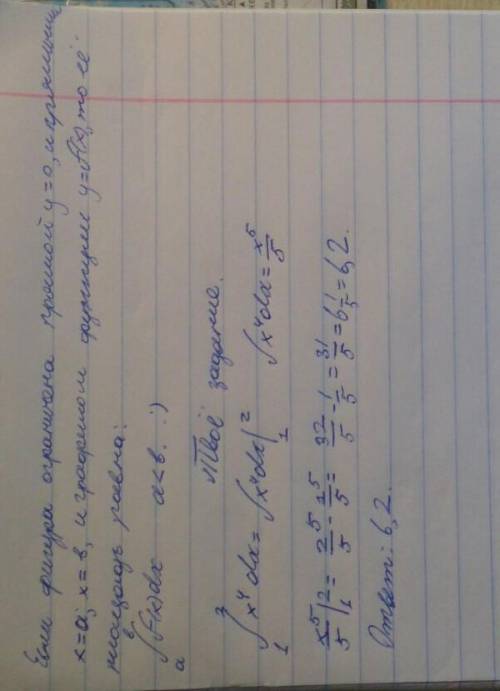 Если фигура ограничена прямой y=0, и прямыми
x=a; x=в, и графиком функции y=f(x), то её
площадь равна:
∫ₐᵇ f(x)dx a<в. :)
Твоё задание.
∫₁² x⁴dx = ∫x⁴dx|₁² ∫x⁴dx = x⁵/5
x⁵/5|₁² = 2⁵/5 - 1⁵/5 = 32/5 - 1/5 = 31/5 = 6 1/5 = 6,2.
Ответ: 6,2.